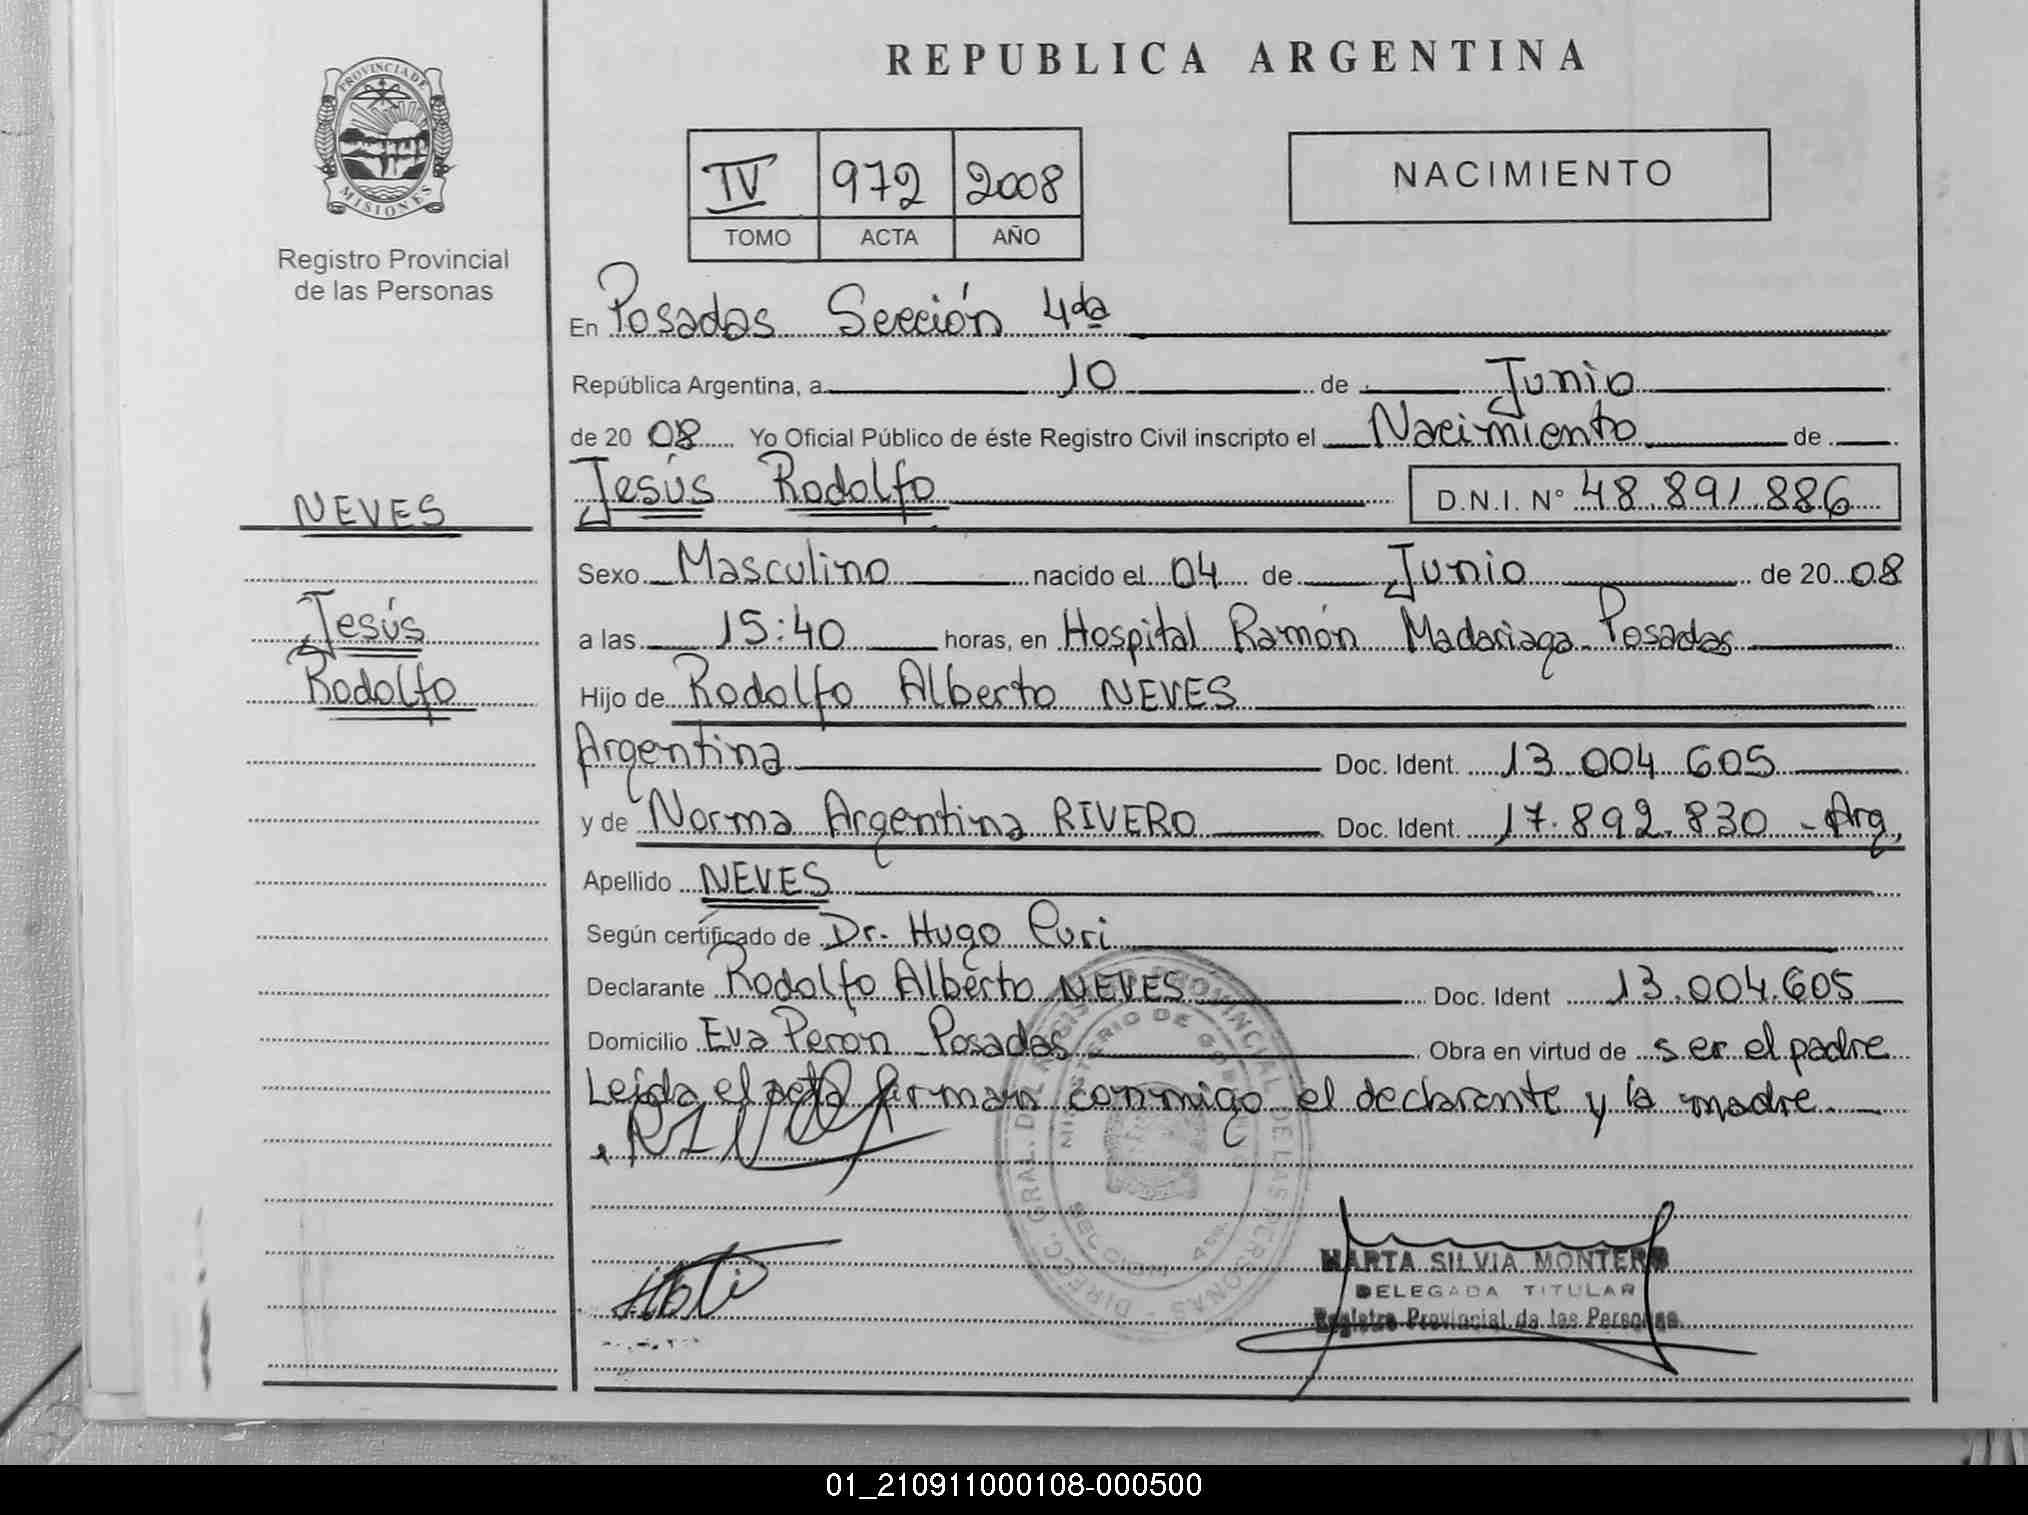 PROVINCIA DE
MISIONES
Registro Provincial
de las Personas
NEVES
Jesús
Rodolfo
REPUBLICA ARGENTINA
IV 972 2008
TOMO ACTA AÑO
NACIMIENTO
En Posadas Sección 4da
República Argentina, a 10 de Junio
de 2008 Yo Oficial Público de éste Registro Civil inscripto el Nacimiento de
Jesús Rodolfo D.N.I. N° 48.891.886
Sexo Masculino nacido el 04 de Junio de 2008
a las 15:40 horas, en Hospital Ramón Madariaga - Posadas
Hijo de Rodolfo Alberto NEVES
Argentina Doc. Ident. 13.004.605
y de Norma Argentina RIVERO Doc. Ident. 17.892.830 - Arg.
Apellido NEVES
Según certificado de Dr. Hugo Puri
Declarante Rodolfo Alberto NEVES Doc. Ident 13.004.605
Domicilio Eva Perón - Posadas Obra en virtud de ser el padre
Leída el acta firman conmigo el declarante y la madre
DIRECC. GRAL. DEL REGISTRO PROVINCIAL DE LAS PERSONAS
MINISTERIO DE
SECCION 4
MARTA SILVIA MONTERO
DELEGADA TITULAR
Registro Provincial de las Personas
01_210911000108-000500